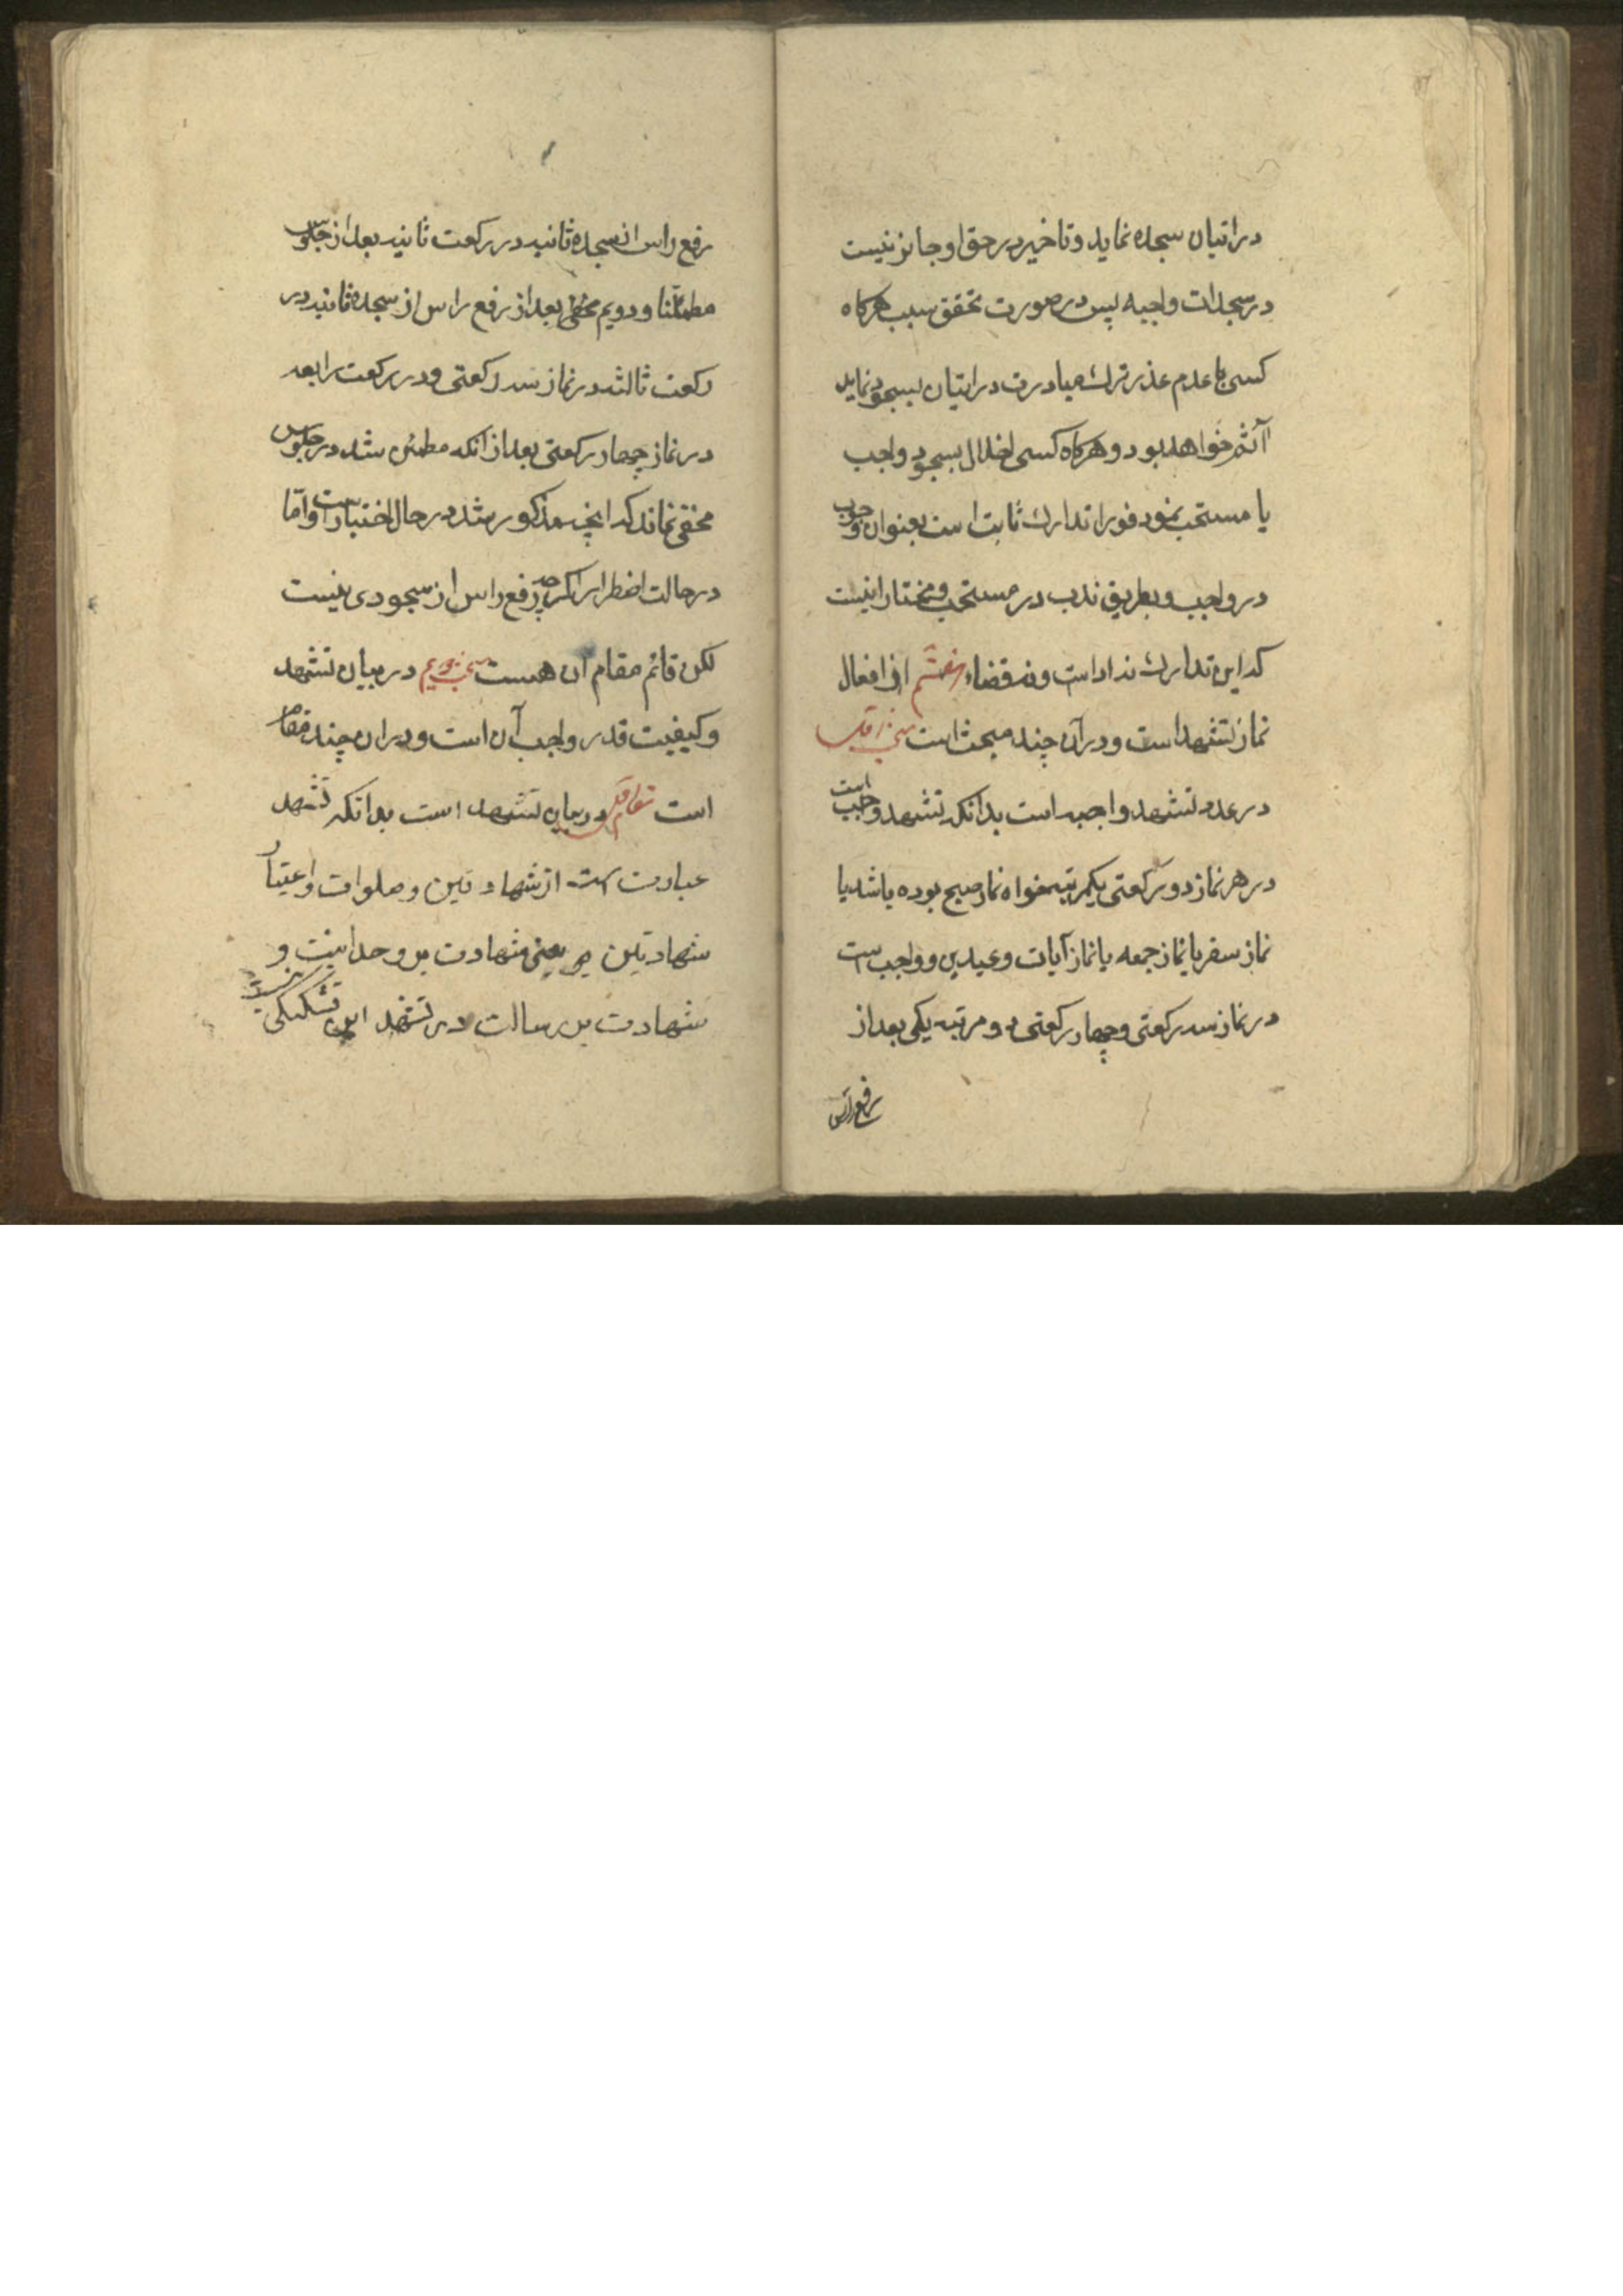 در اتیان سجده نماید و تاخیر در حق او جائز نیست
در سجدات واجبه پس در صورت تحقق سبب هرکاه
کسی با عدم عذر ترک مبادرت در اتیان بسجود نماید
آثم خواهد بود و هرکاه کسی اخلال بسجود واجب
یا مستحب نمود فورا تدارک ثابت است بعنوان وجوب
در واجب و بطریق ندب در مستحب و مختار اینست
که این تدارک نه ادا است و نه قضاء هفتم از افعال
نماز تشهد است و در آن چند مبحث است مبحث اول
در عدد تشهد واجبه است بدانکه تشهد واجب است
در هر نماز دو رکعتی یکمرتبه خواه نماز صبح بوده باشد یا
نماز سفر یا نماز جمعه یا نماز آیات و عیدین و واجب است
در نماز سه رکعتی و چهار رکعتی دو مرتبه یکی بعد از
رفع راس
رفع راس از سجده ثانیه در رکعت ثانیه بعد از جلوس
مطمئنا و دویم بعد از رفع راس از سجده ثانیه در
رکعت ثالثه در نماز سه رکعتی و در رکعت رابعه
در نماز چهار رکعتی بعد از انکه مطمئن شد در جلوس
مخفی نماند که انچه مذکور شد در حال اختیار است و امّا
در حالت اضطرار اکرچه رفع راس از سجودی نیست
لکن قائم مقام آن هست مبحث دویم در بیان تشهد
و کیفیت قدر واجب آن است و در ان چند مقام
است مقام اول در بیان تشهد است بدانکه تشهد
عبارت است از شهادتین و صلوات و اعتبار
شهادتین یعنی شهادت بر وحدانیت و
شهادت بر رسالت در تشهد این تشکیکی نیست